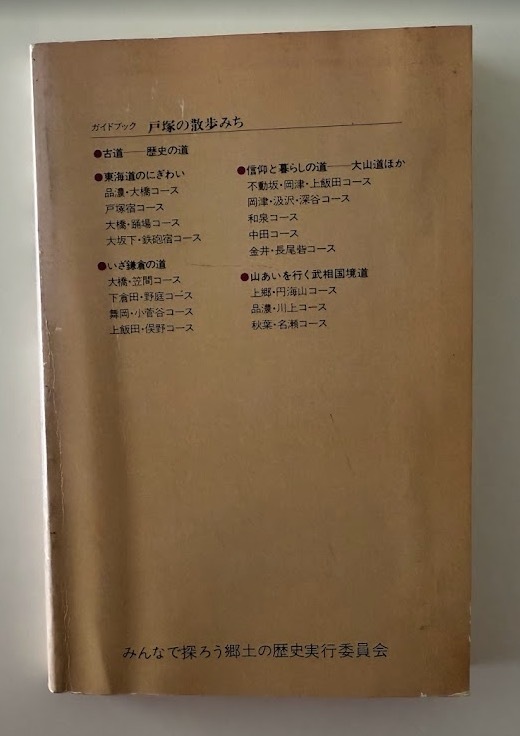 ガイドブック 戸塚の散歩みち
●古道――歴史の道
●東海道のにぎわい
品濃・大橋コース
戸塚宿コース
大橋・踊場コース
大坂下・鉄砲宿コース
●いざ鎌倉の道
大橋・笠間コース
下倉田・野庭コース
舞岡・小菅谷コース
上飯田・俣野コース
●信仰と暮らしの道――大山道ほか
不動坂・岡津・上飯田コース
岡津・汲沢・深谷コース
和泉コース
中田コース
金井・長尾砦コース
●山あいを行く武相国境道
上郷・円海山コース
品濃・川上コース
秋葉・名瀬コース
みんなで探ろう郷土の歴史実行委員会